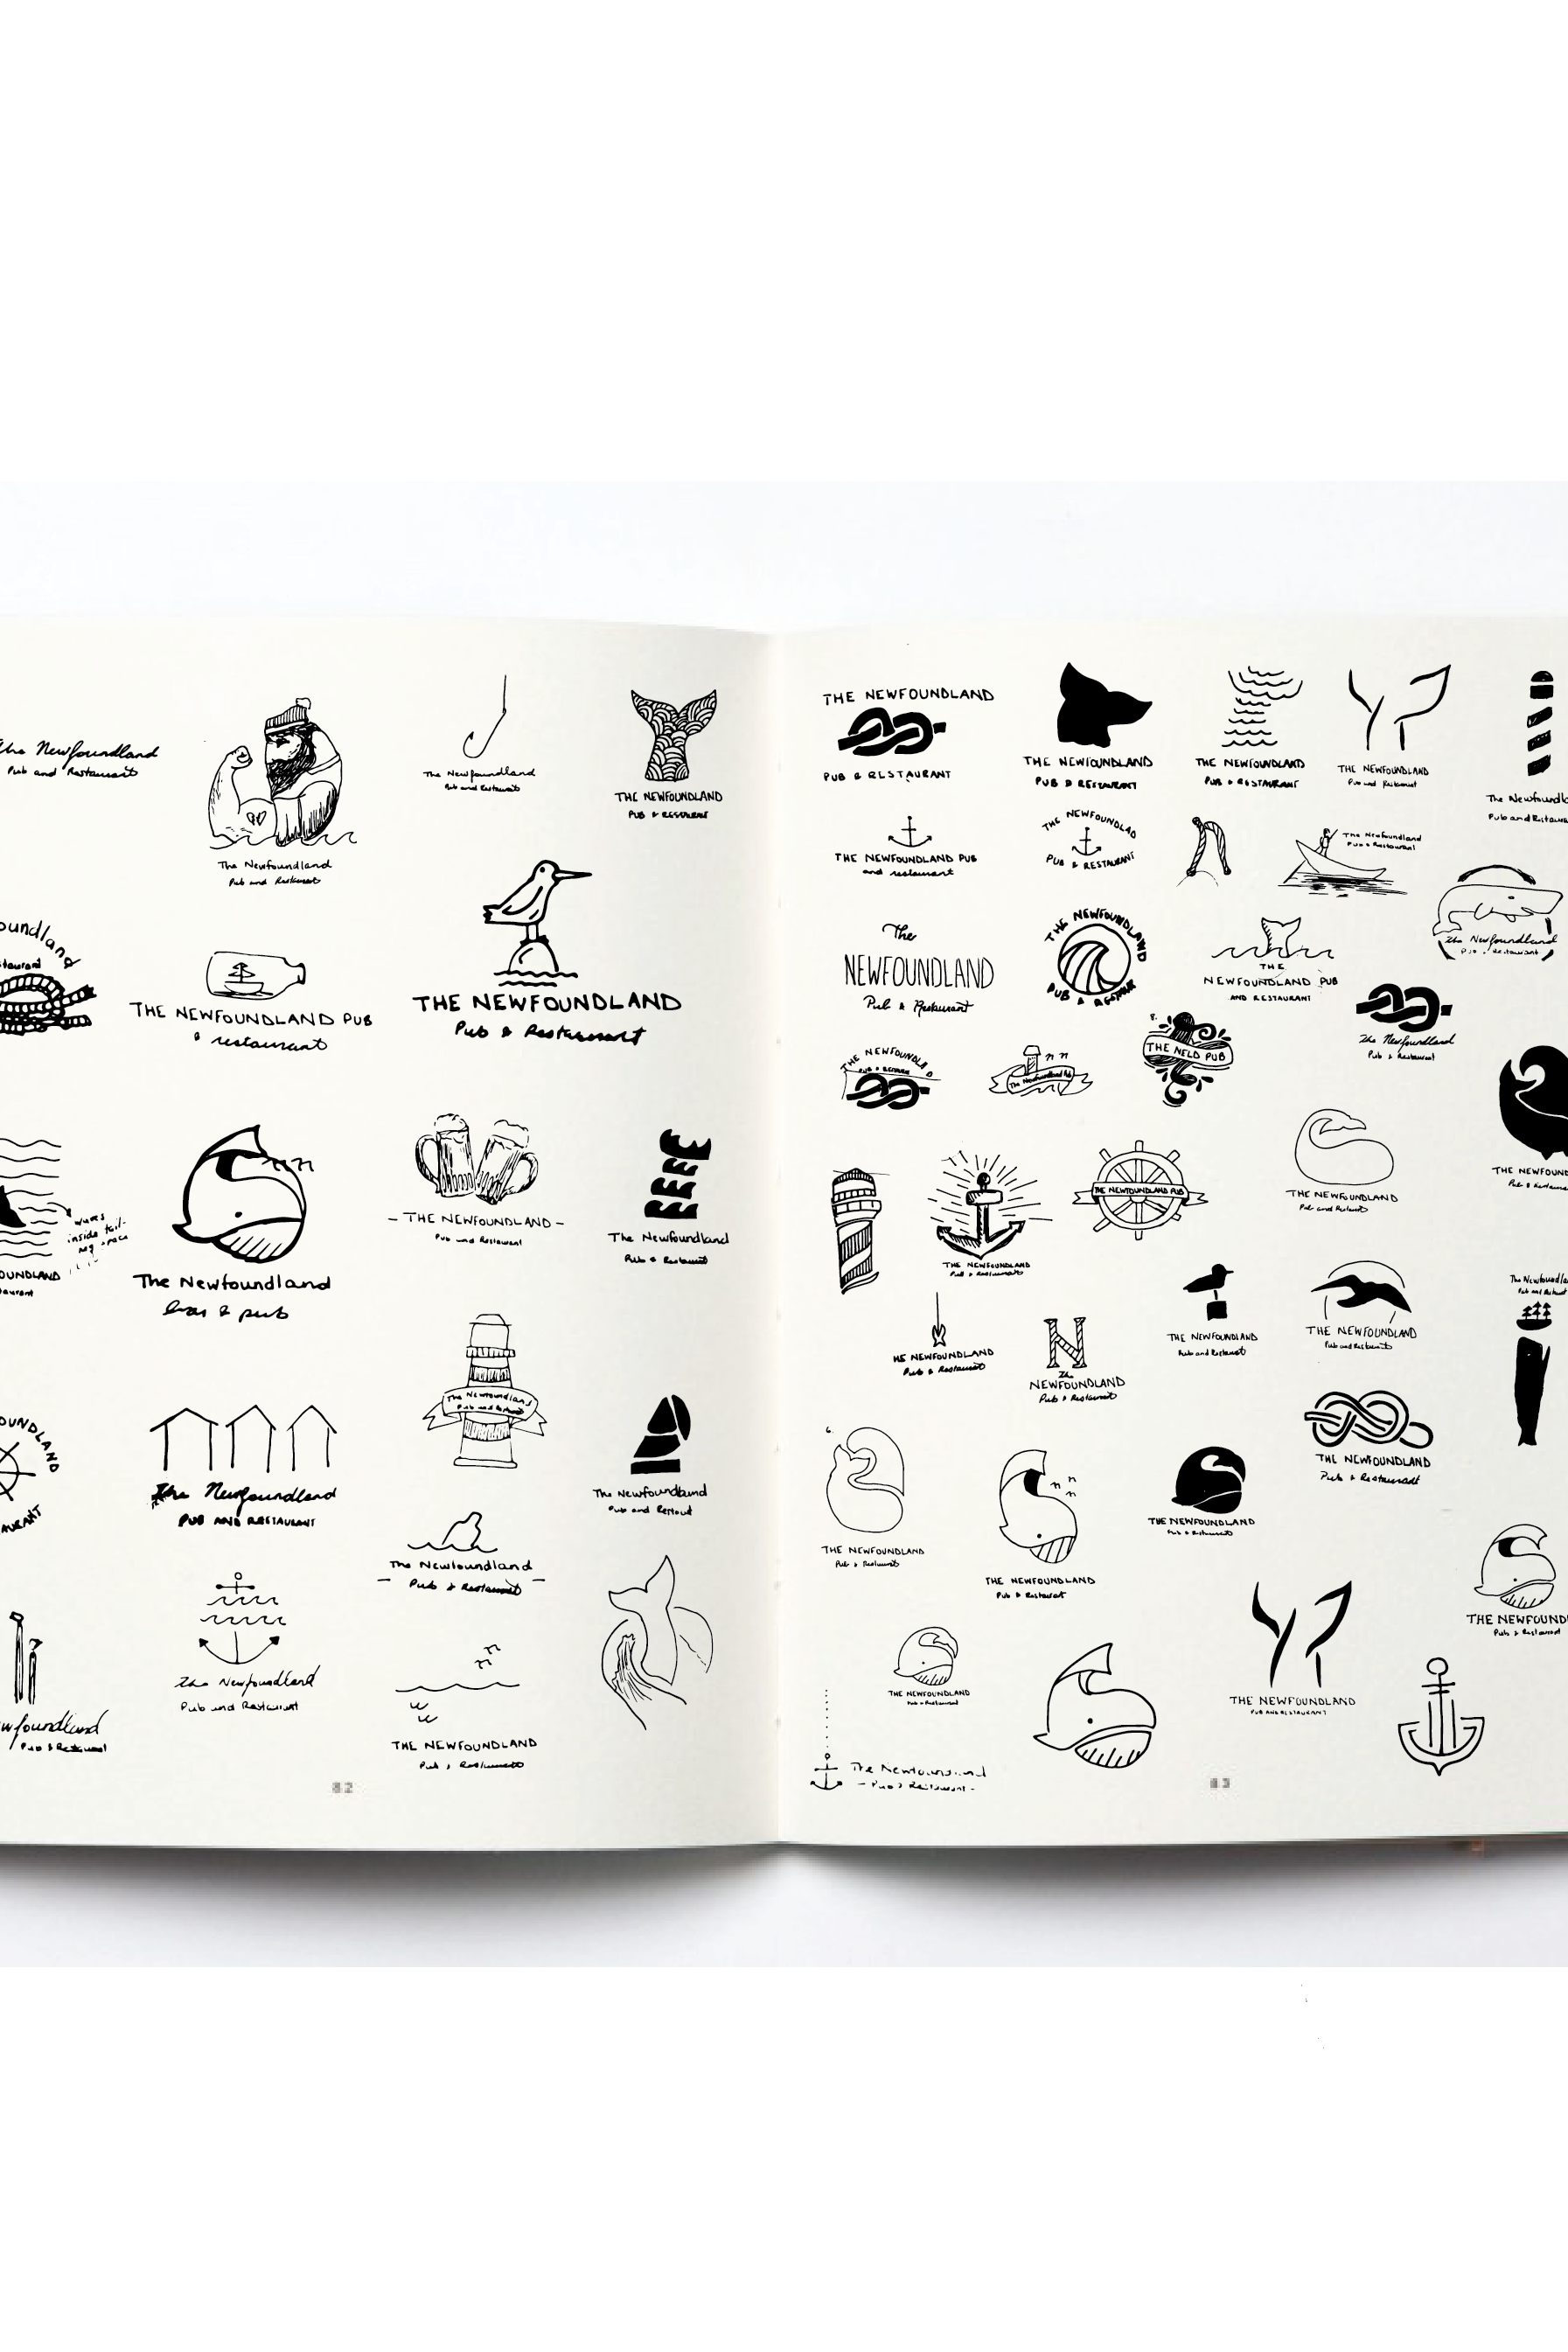 The Newfoundland
Pub and Restaurant
The Newfoundland
Pub and Restaurant
The Newfoundland
Pub and Restaurant
THE NEWFOUNDLAND
PUB & RESTAURANT
oundland
staurant
THE NEWFOUNDLAND PUB
& restaurant
THE NEWFOUNDLAND
Pub & Restaurant
waves
inside tail-
neg space
OUNDLAND
aurant
The Newfoundland
bar & pub
- THE NEWFOUNDLAND -
Pub and Restaurant
The Newfoundland
Pub & Restaurant
The Newfoundland
Pub and Restaurant
OUNDLAND
AURANT
The Newfoundland
PUB AND RESTAURANT
The Newfoundland
Pub and Restaurant
The Newfoundland
- Pub & Restaurant -
The Newfoundland
Pub and Restaurant
wfoundland
Pub & Restaurant
THE NEWFOUNDLAND
Pub & Restaurant
82
THE NEWFOUNDLAND
PUB & RESTAURANT
THE NEWFOUNDLAND
PUB & RESTAURANT
THE NEWFOUNDLAND
PUB & RESTAURANT
THE NEWFOUNDLAND
Pub and Restaurant
The Newfoundla
Pub and Restaura
THE NEWFOUNDLAND PUB
and restaurant
THE NEWFOUNDLAD
PUB & RESTAURANT
The Newfoundland
Pub & Restaurant
The Newfoundland
Pub & Restaurant
The
NEWFOUNDLAND
Pub & Restaurant
THE NEWFOUNDLAND
PUB &
THE
NEWFOUNDLAND PUB
AND RESTAURANT
The Newfoundland
Pub & Restaurant
THE NEWFOUNDLAD
The Newfoundland Pub
8.
THE NFLD PUB
THE NEWFOUNDLAND PUB
THE NEWFOUNDLAND
Pub and Restaurant
THE NEWFOUN
Pub & Restauran
THE NEWFOUNDLAND
Pub & Restaurant
HE NEWFOUNDLAND
Pub & Restaurant
The
NEWFOUNDLAND
Pub & Restaurant
THE NEWFOUNDLAND
Pub and Restaurant
THE NEWFOUNDLAND
Pub and Restaurant
The Newfoundla
Pub and Restaurant
THE NEWFOUNDLAND
Pub & Restaurant
6.
THE NEWFOUNDLAND
Pub & Restaurant
THE NEWFOUNDLAND
Pub & Restaurant
THE NEWFOUNDLAND
Pub & Restaurant
THE NEWFOUND
Pub & Restaurant
THE NEWFOUNDLAND
Pub & Restaurant
THE NEWFOUNDLAND
PUB AND RESTAURANT
The Newfoundland
- Pub & Restaurant -
83